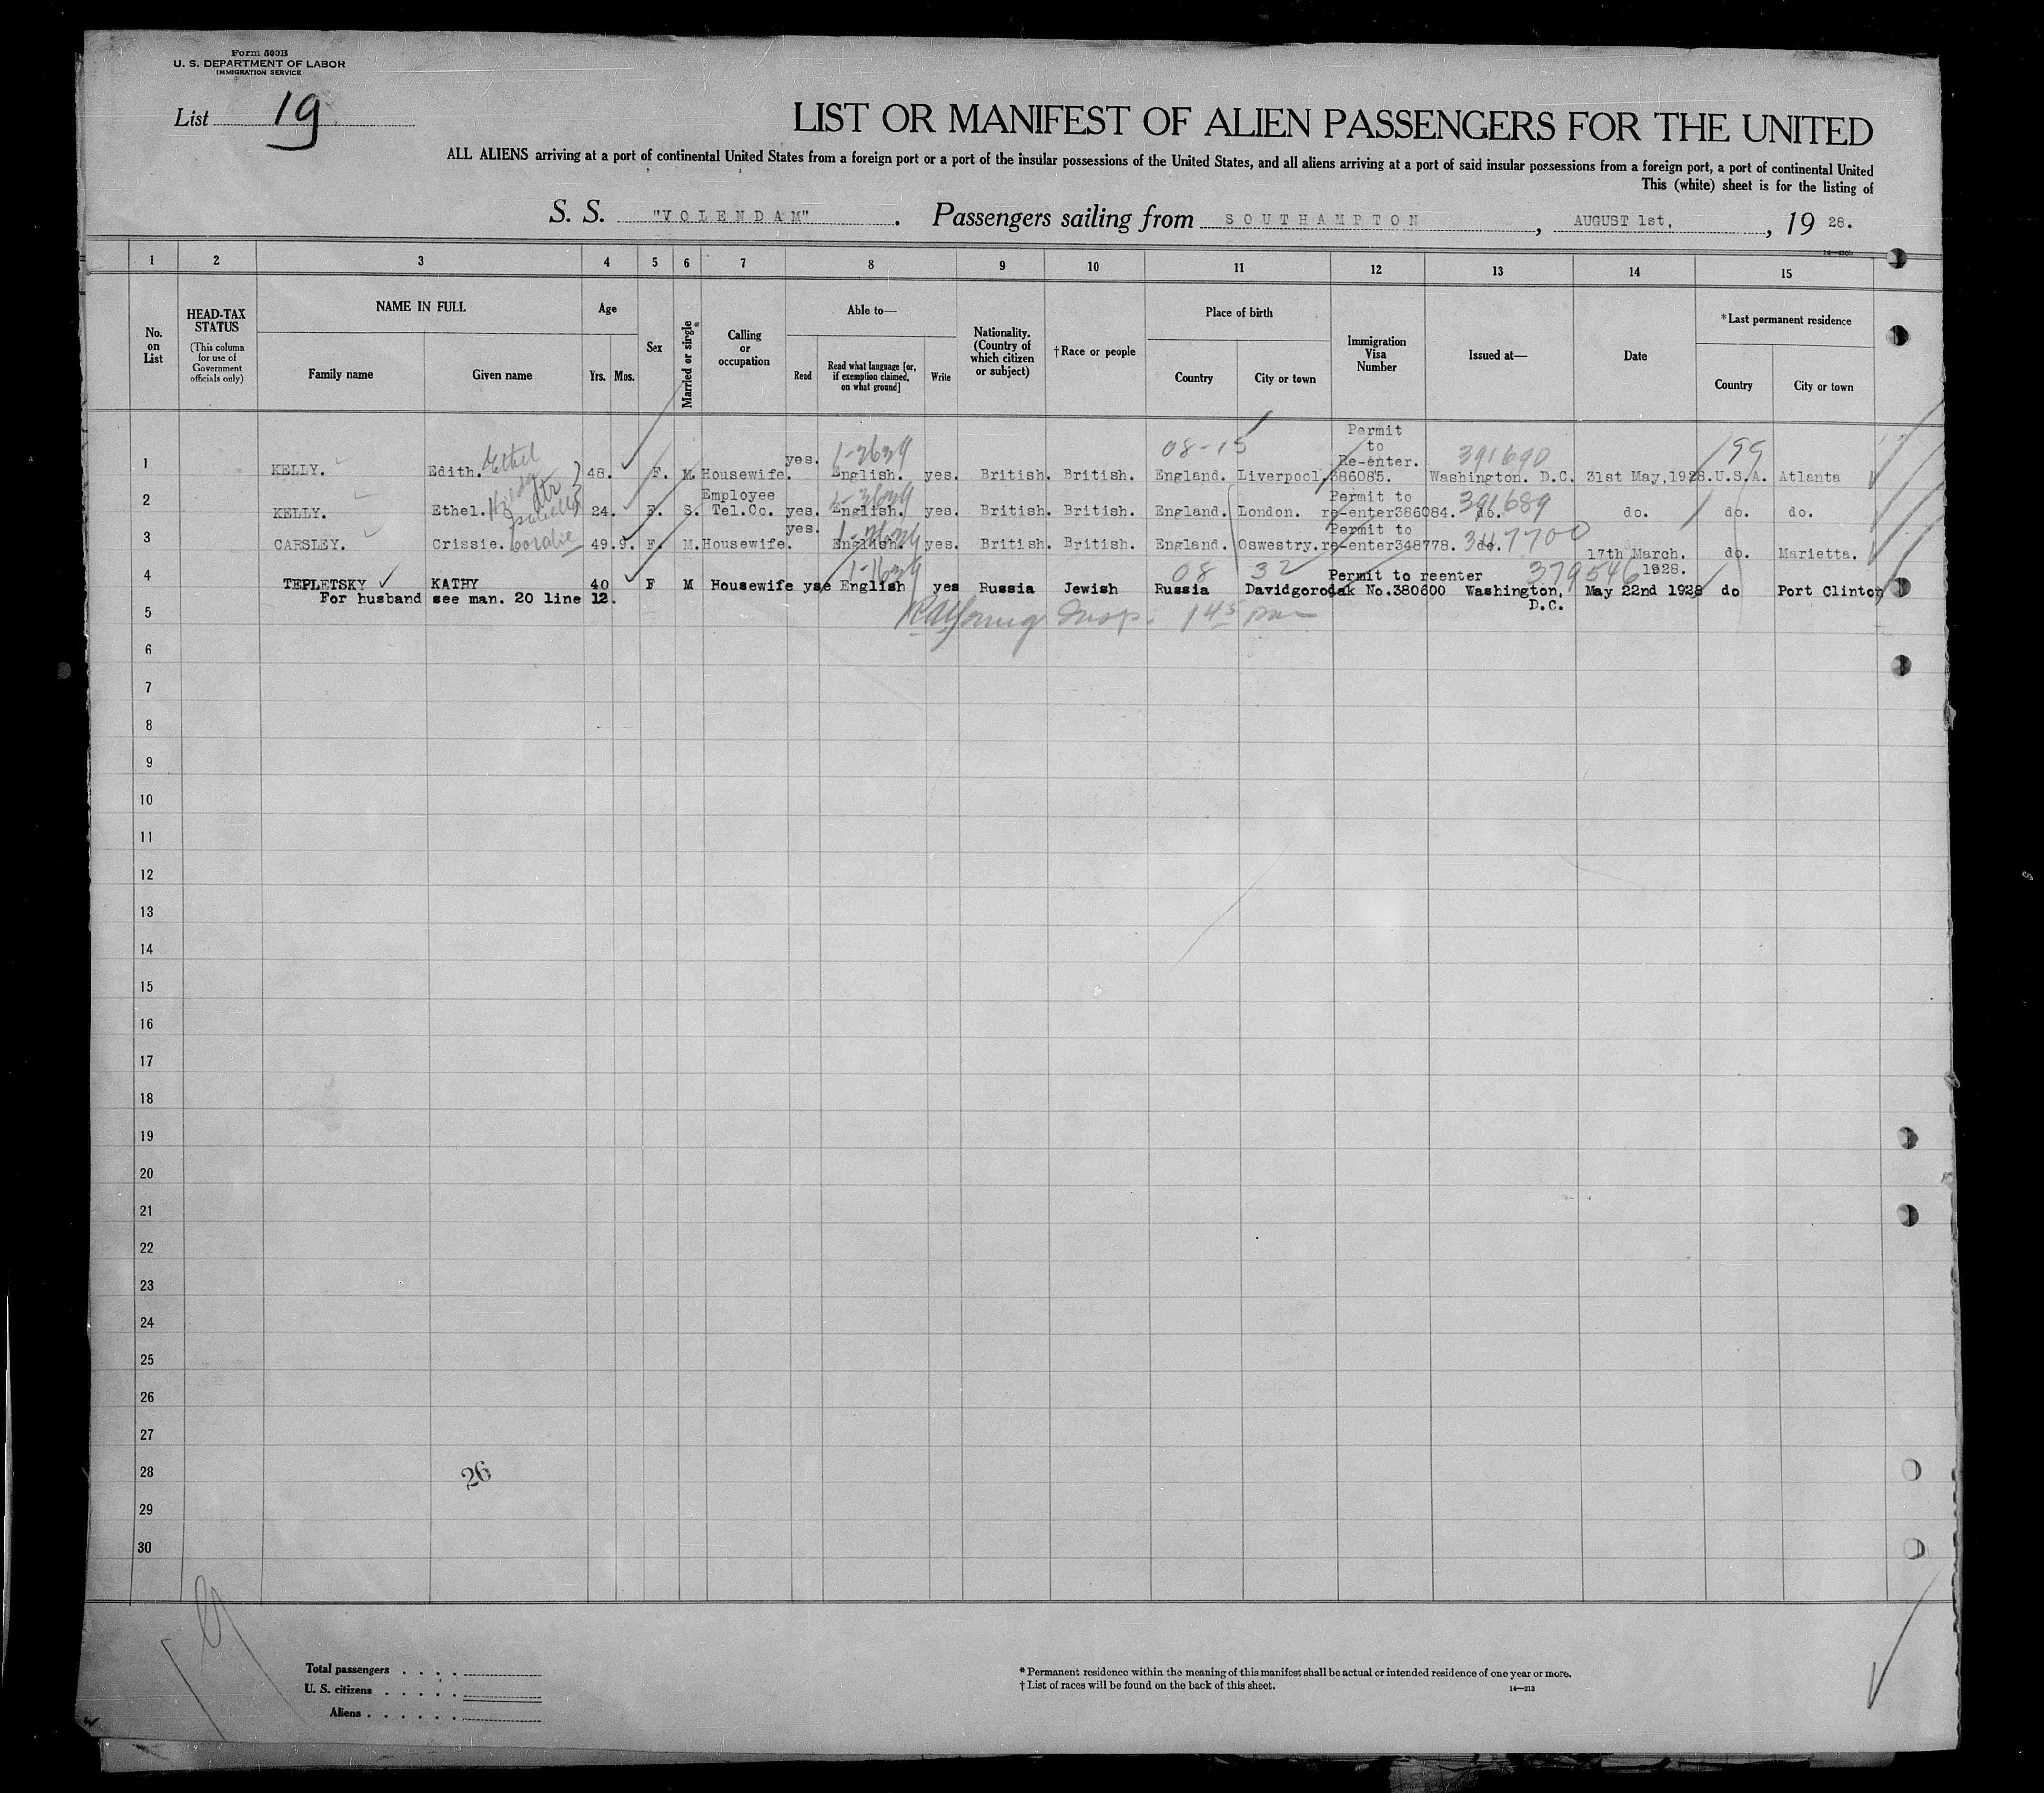 Form 500B
U. S. DEPARTMENT OF LABOR
IMMIGRATION SERVICE
List 19
LIST OR MANIFEST OF ALIEN PASSENGERS FOR THE UNITED
ALL ALIENS arriving at a port of continental United States from a foreign port or a port of the insular possessions of the United States, and all aliens arriving at a port of said insular possessions from a foreign port, a port of continental United
This (white) sheet is for the listing of
S. S. "VOLENDAM". Passengers sailing from SOUTHAMPTON, AUGUST 1st, , 19 28.
1 2 3 4 5 6 7 8 9 10 11 12 13 14 15
No. on List
HEAD-TAX STATUS
(This column for use of Government officials only)
NAME IN FULL
Family name Given name
Age
Yrs. Mos.
Sex
Married or single
Calling or occupation
Able to—
Read
Read what language [or, if exemption claimed, on what ground]
Write
Nationality. (Country of which citizen or subject)
†Race or people
Place of birth
Country City or town
Immigration Visa Number
Issued at—
Date
*Last permanent residence
Country City or town
1 KELLY. Edith. Ethel 48. F. M. Housewife. yes. English. 1-3639 yes. British. British. 08-15 England. Liverpool. Permit to Re-enter. 386085. 391690 Washington. D.C. 31st May,1928. 99 U.S.A. Atlanta
2 KELLY. Ethel. dtr 24. F. S. Employee Tel.Co. yes. English. yes. British. British. England. London. Permit to re-enter386084. 391689 do. do. do. do.
3 CARSLEY. Crissie. Coralie 49.9. F. M. Housewife. yes. English. yes. British. British. England. Oswestry. Permit to re-enter348778. 347700 do. 17th March. 1928. do. Marietta.
4 TEPLETSKY KATHY 40 F M Housewife yse English yes Russia Jewish 08 32 Russia Davidgorodak Permit to reenter No.380600 379546 Washington, D.C. May 22nd 1928 do Port Clinton
For husband see man. 20 line 12.
5
6
7
8
9
10
11
12
13
14
15
16
17
18
19
20
21
22
23
24
25
26
27
28
26
29
30
Total passengers
U. S. citizens
Aliens
* Permanent residence within the meaning of this manifest shall be actual or intended residence of one year or more.
† List of races will be found on the back of this sheet.
14—213